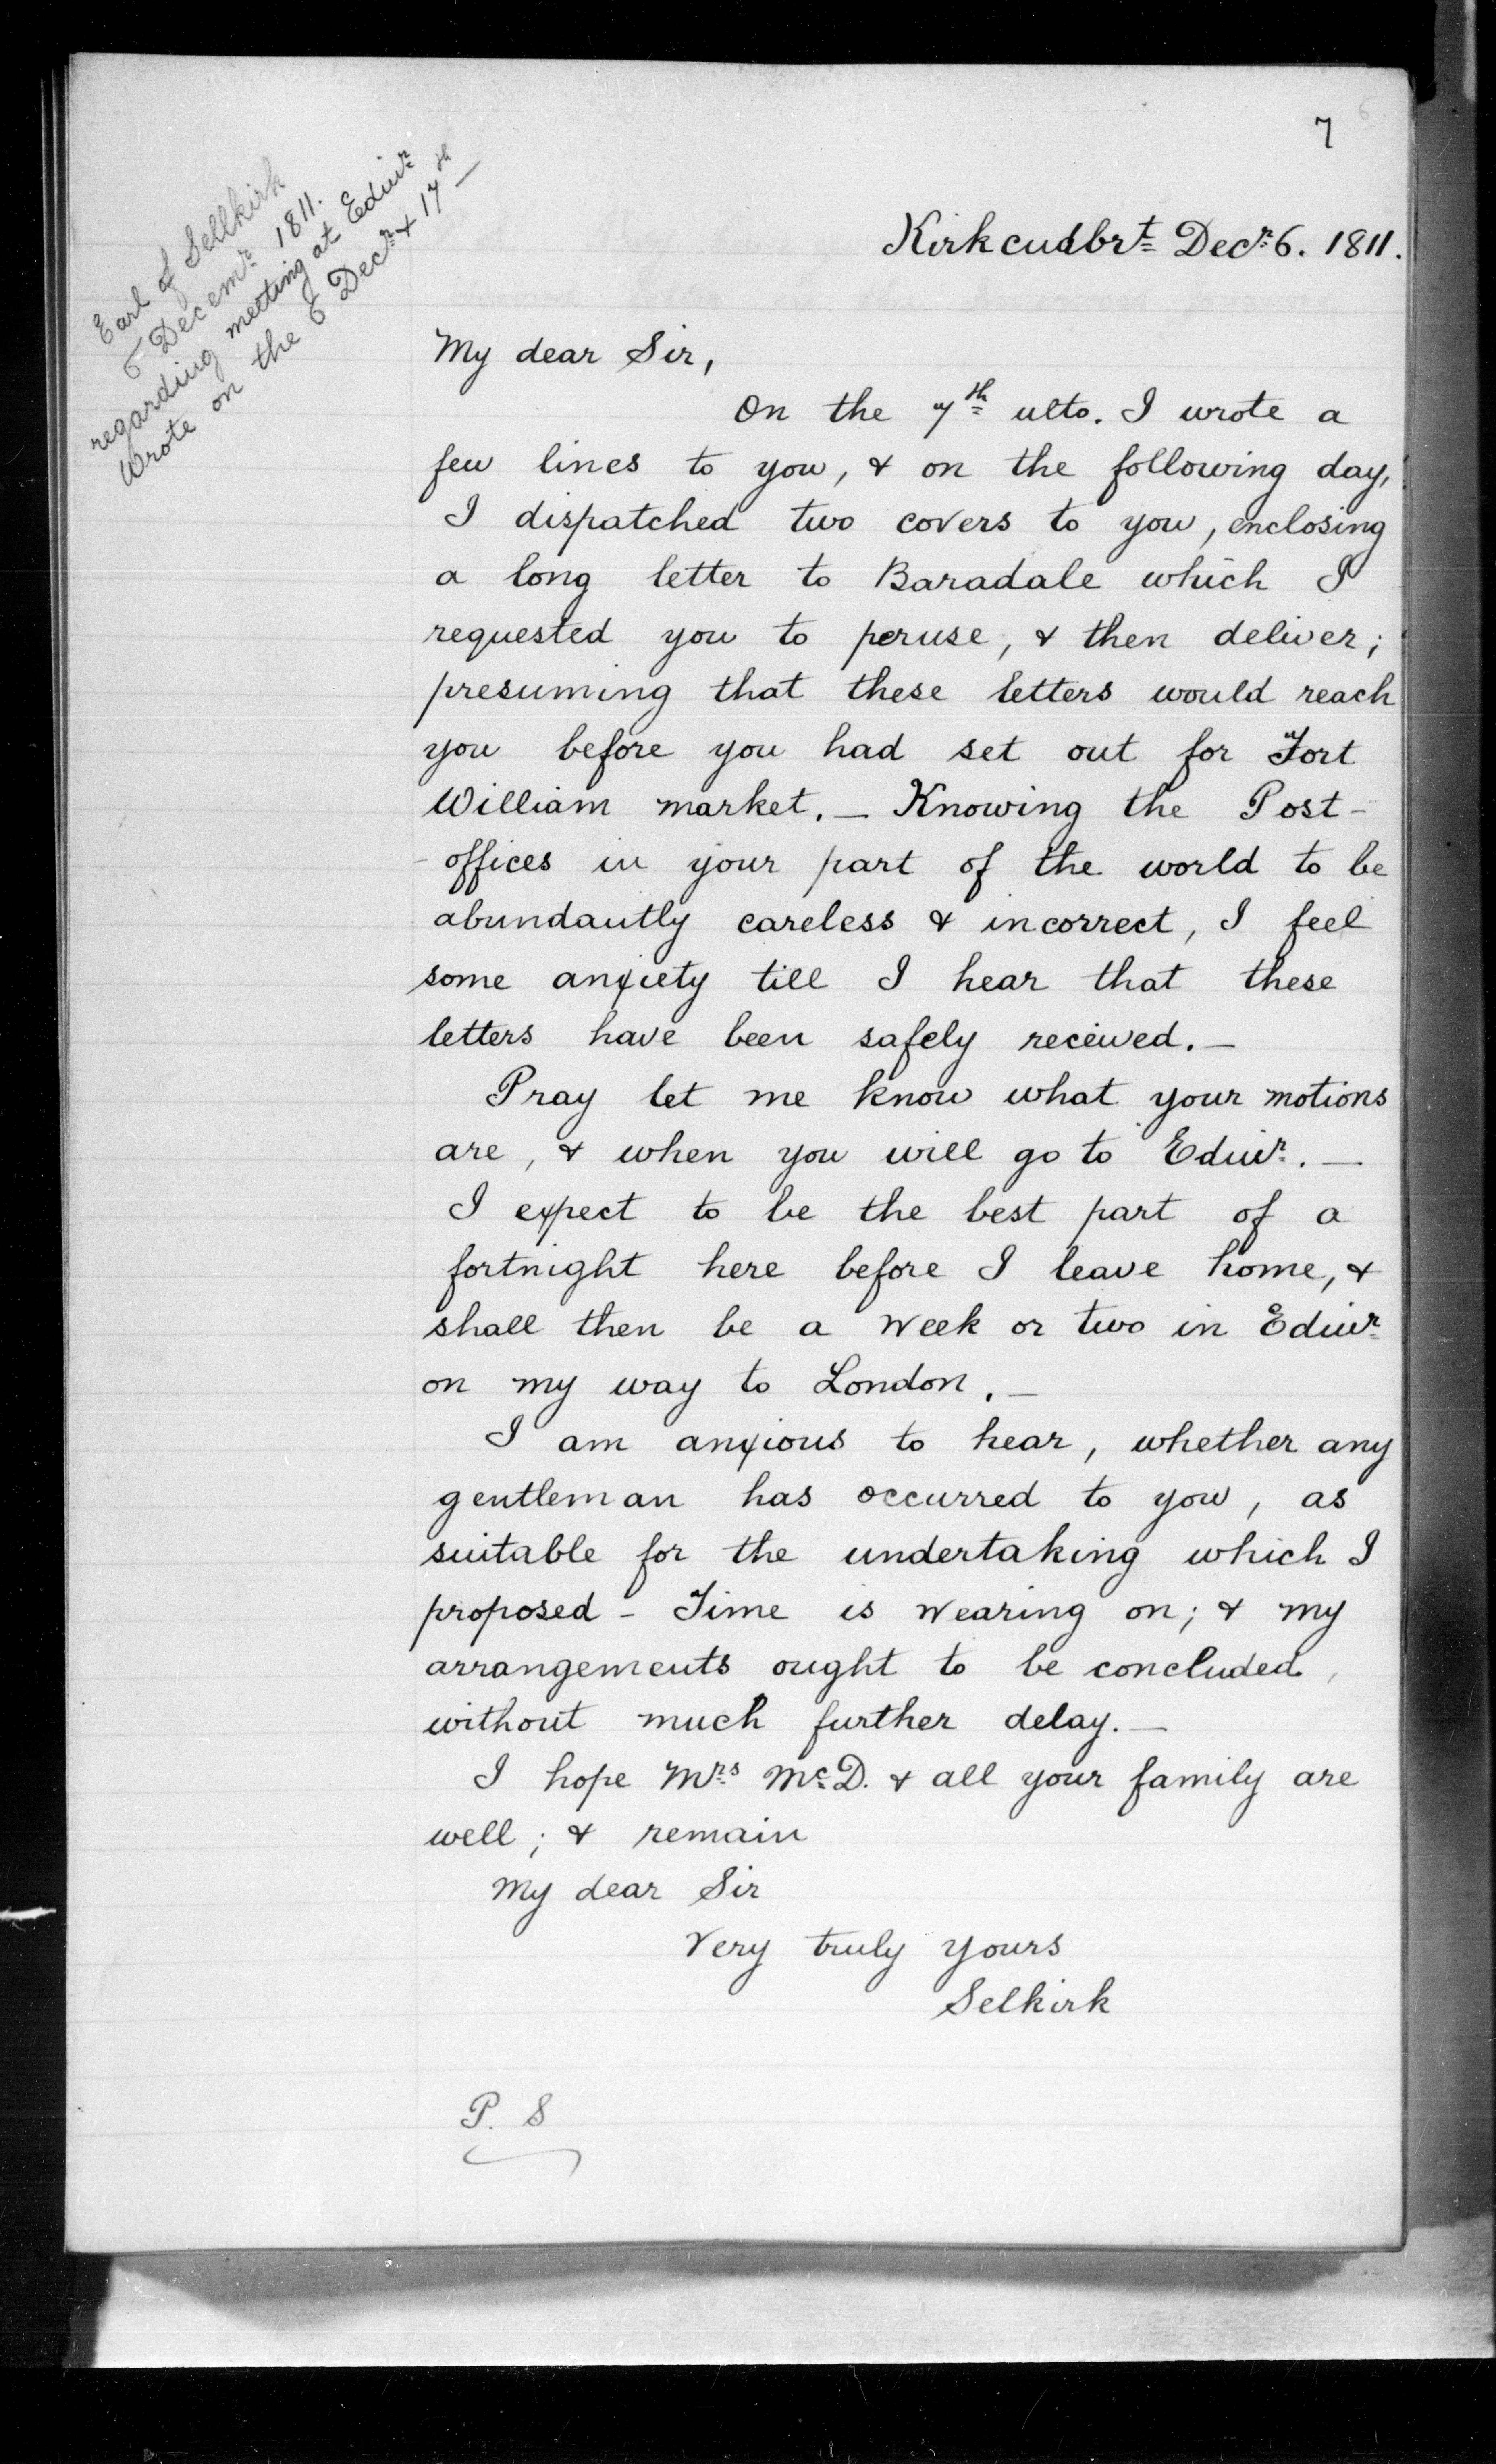 7
Earl of Sellkirk
6 Decemr. 1811.
regarding meeting at Edinr
Wrote on the 6 Decr. & 17th —
Kirkcudbrt Decr. 6. 1811.
My dear Sir,
On the 7th ulto. I wrote a
few lines to you, & on the following day,
I dispatched two covers to you, enclosing
a long letter to Baradale which I
requested you to peruse, & then deliver;
presuming that these letters would reach
you before you had set out for Fort
William market. — Knowing the Post-
-offices in your part of the world to be
abundantly careless & incorrect, I feel
some anxiety till I hear that these
letters have been safely received. —
Pray let me know what your motions
are, & when you will go to Edinr. —
I expect to be the best part of a
fortnight here before I leave home, &
shall then be a week or two in Edinr
on my way to London. —
I am anxious to hear, whether any
gentleman has occurred to you, as
suitable for the undertaking which I
proposed - Time is wearing on; & my
arrangements ought to be concluded,
without much further delay. —
I hope Mrs McD. & all your family are
well; & remain
My dear Sir
Very truly yours
Selkirk
P. S